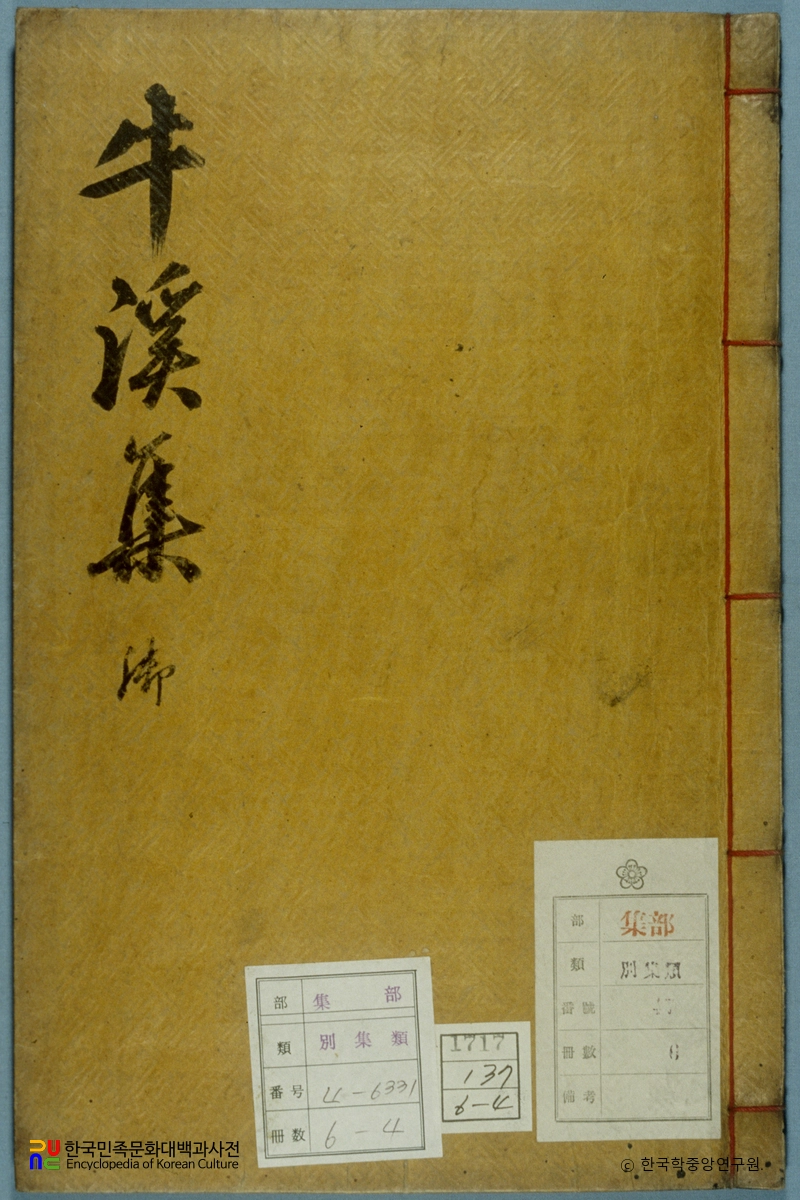 牛溪集
御
部 集部
類 別集類
番号 4-6331
冊数 6-4
1717
137
6-4
部 集部
類
番號 47
冊數 6
備考
한국민족문화대백과사전
Encyclopedia of Korean Culture
© 한국학중앙연구원